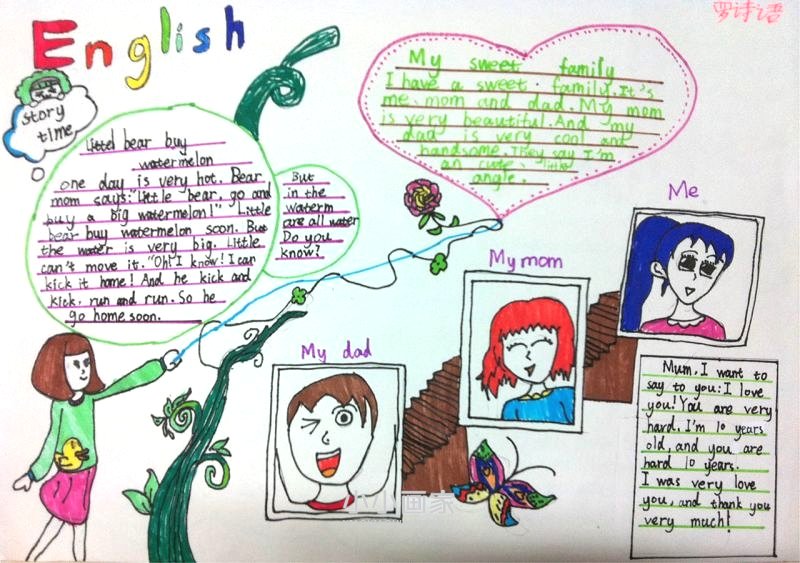 罗诗语
English
story
time
Littel bear buy
watermelon
one day is very hot. Bear
mom says:"Little bear, go and
buy a big watermelon!" Little
bear buy watermelon soon. But
the water is very big. Little
can't move it. "Oh! I know! I can
kick it home! And he kick and
kick, run and run. So he
go home soon.
But
in the
waterm
are all water
Do you
know?
My sweet family
I have a sweet family. It's
me, mom and dad. My mom
is very beautiful. And my
dad is very cool and
handsome. They say I'm
an cute little
angle.
Me
My mom
My dad
Mum, I want to
say to you: I love
you! You are very
hard. I'm 10 years
old, and you are
hard 10 years.
I was very love
you, and thank you
very much!
小小画家